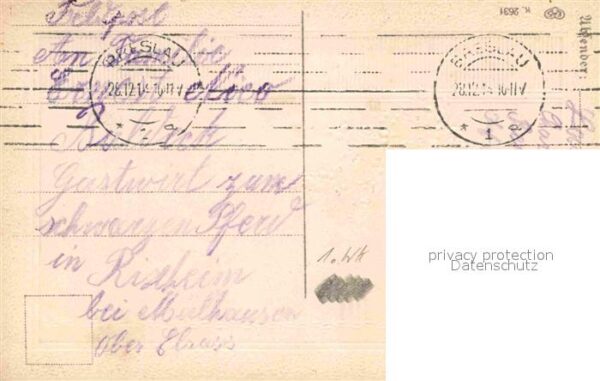 Feldpost
An Familie
BRESLAU
28.12.14.10-11V
* 1 g
BRESLAU
28.12.14.10-11V
* 1 g
Gastwirt zum
schwarzen Pferd
in Rixheim
bei Mülhausen
Ober Elsass
1. WK
K. 2631
Absender:
privacy protection
Datenschutz